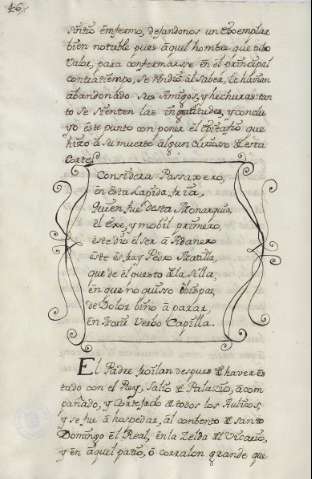 46,,
Sintio emfermo, dejandonos un Exemplar
bien notable pues aquel hombre que tubo
Valor, para conformarse en el principal
contratiempo, se rindio al saver, le havian
abandonado sus Amigos, y hechuras: tan
to se sienten las ingratitudes, y conclu
yo este punto con poner el Epitafio que
hizo a su muerte algun Curioso de esta
Corte
Considera Passaxero,
en esta Lapida fria,
quien fue desta Monarquia,
el exe, y mobil primero,
este dio el ser a Adanero
este es fray Pedro Matilla,
que de el puesto de la silla,
en que no quiso
de Dolor bino a parar,
en Verbo Capilla.
El Padre froilan despues de haver es
tado con el Rey, salio de Palacio, acom
pañado, y Cortejado de todos los Aulicos,
y se fue a hospedar, al combento de Santo
Domingo el Real, en la Zelda del Vicario,
y en aquel patio, o corralon grande que